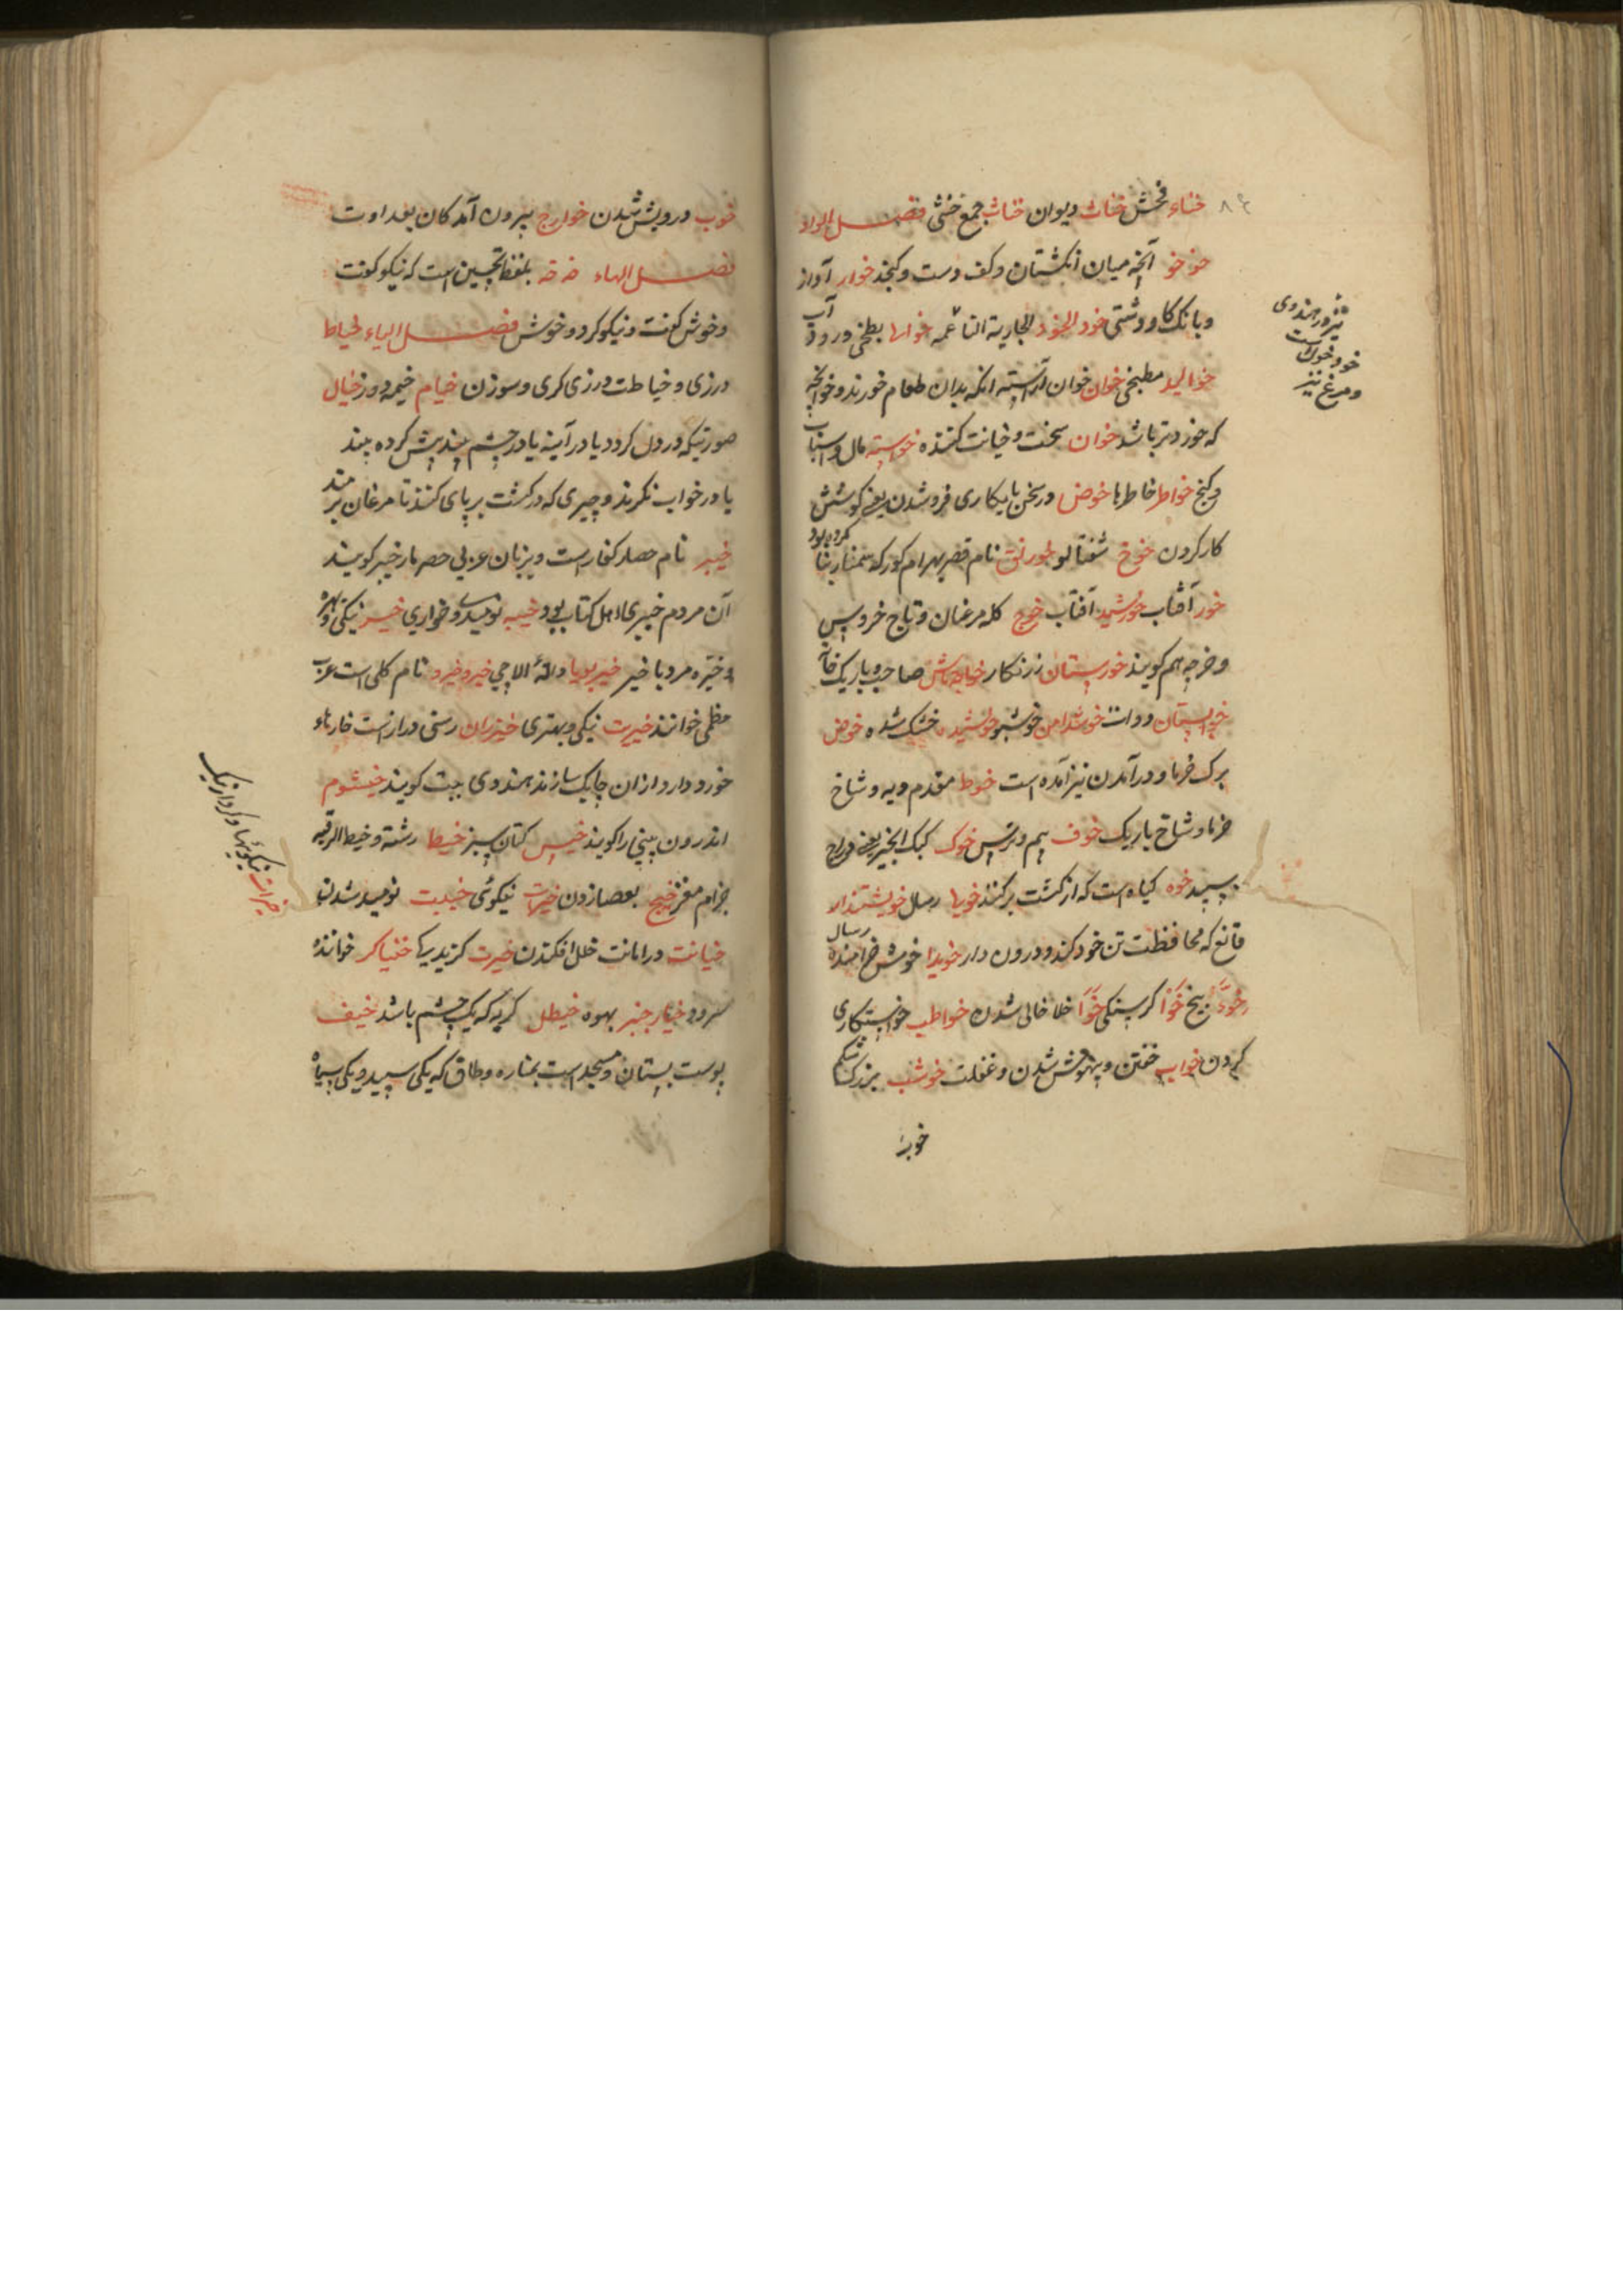 خناء فحش خناث دیوان خناث جمع خنثی فصل الواو
خوخو آنچه میان انکشتان وکف دست وکنجد خوار آواز
وبانک کاو ودشتی خود الخود الجاریة الناعمه خوالها بطخی ورود آب
خوالید مطبخی خوان خوان آراسته انکه بدان طعام خورند وخوانچه
که خوردتر باشد خوان سخت وخیانت کننده خوسته مال واسباب
وکنج خواطر خاطرها خوض درسخن یا بکاری فروشدن یعنی کوشش
کار کردن خوخ شفتالو خورنق نام قصر بهرام کور که سمنار بنا کرده بود
خور آفتاب خورشید آفتاب خوچ کله مرغان وتاج خروس
وخوچه هم کویند خورستان زرنکار خواجه تاش صاحب
دوات خوشدامن خوشبو خوشیده خشک شده خوض
برک خرما ودر آمدن نیز آمده است خوط مقدم دیه وشاخ
خرما وشاخ باریک خوف بیم وترس خوک کبک انجیر یعنی دراج
سپید خوه کیاه است که از کشت برکنند خویها رسال خویشتندار
قانع که محافظت تن خود کند ودرون دار خویدا خوش خرامنده رسال
بیخ خوا کرسنکی خوا خلا خالی شدن خواطب خواستکاری
کردن خواب خفتن وبیهوش شدن وغفلت خوشب بزرک شکم
خوب
نیز در هندوی
خود خوک است
ومرغ نیز
خوب درویش شدن خوارج بیرون آمدکان بعداوت
فصل الهاء خه خه بلفظ تحسین است که نیکو کفت
وخوش کفت ونیکو کرد وخوش فصل الیاء خیاط
درزی وخیاطت درزی کری وسوزن خیام خیمه دوز خیال
صورتیکه در دل کردد یا در آینه یا در چشم پیش کرده بیند
یا در خواب نکرند وچیزی که در کشت برپای کنند تا مرغان برمند
خیبر نام حصار کفار است وبزبان عربی حصار خیبر کویند
آن مردم خیبری اهل کتاب بود خیبه نومیدی وخواری خیر نیکی وبهره
وخیره مرد با خیر خیر بویا دانهٔ الاچی خیرو خیرو نام کلی است عرب
خطمی خوانند خیرت نیکی وبهتری خیزران رستی دراز است خارهاء
خورد دارد از ان چابک سازند هندوی بیت کویند خیشوم
اندرون بینی را کویند خیس کتان سبز خیط رشته وخیط الرقبه
حرام مغز خیج بعصا زدن خیرات نیکوئی خیبت نومید شدن
خیانت در امانت خلل افکندن خیرت کزیدیکی خنیاکر خوانندهٔ
سرود خیار جنبر بهوه خیطل کربه که یک چشم باشد خیف
پوست پستان ومسجد است بمناره وطاق که یکی سپید ویکی سیاه
خیرات نیکوئیها وکردار نیک